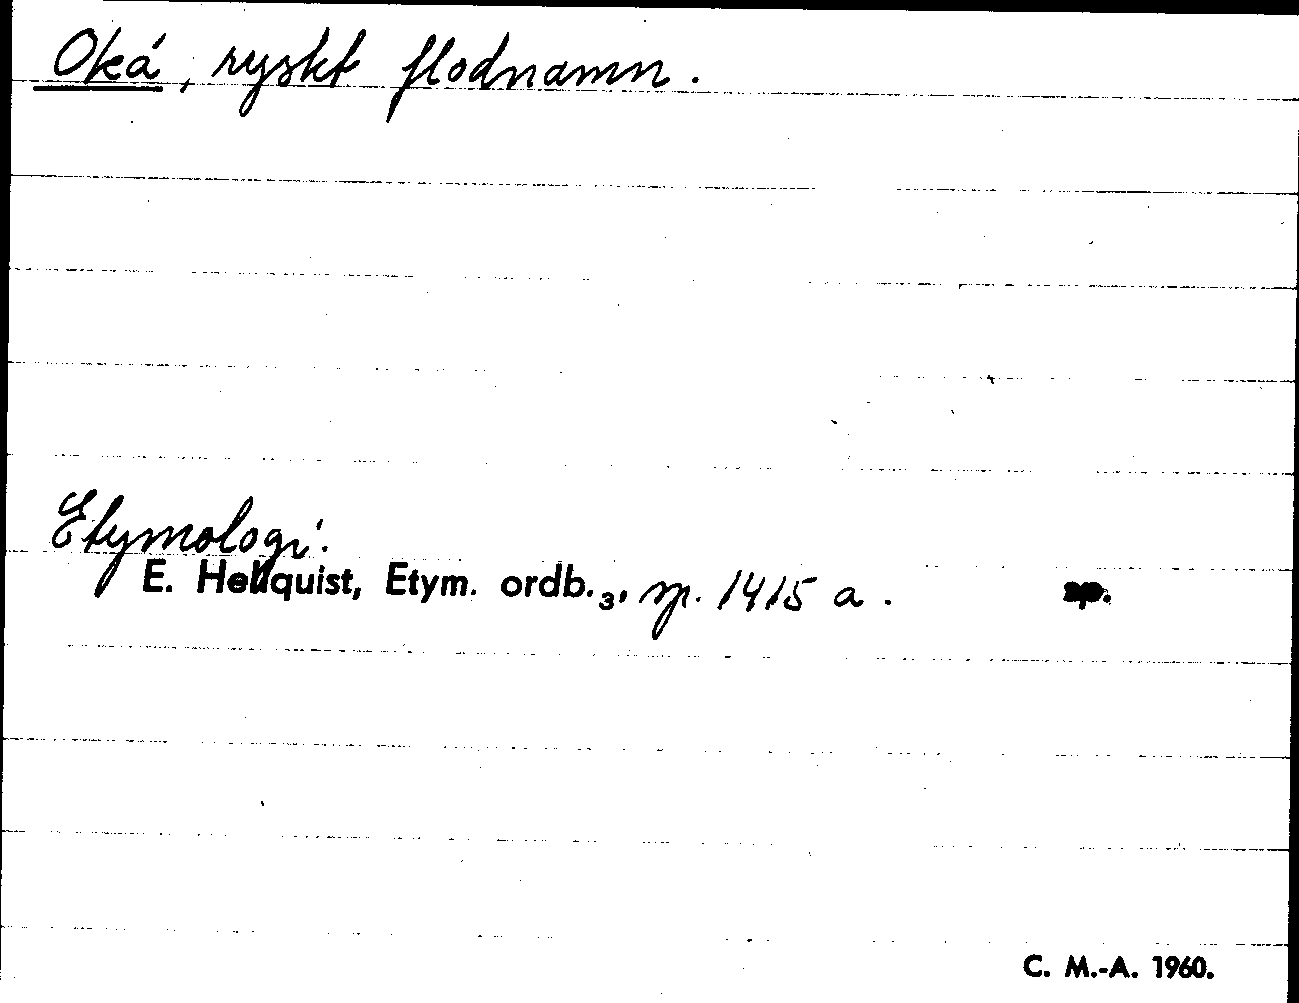 Oká, ryskt flodnamn.
Etymologi.
E. Hellquist, Etym. ordb.₃, sp. 1415 a.
C. M.-A. 1960.